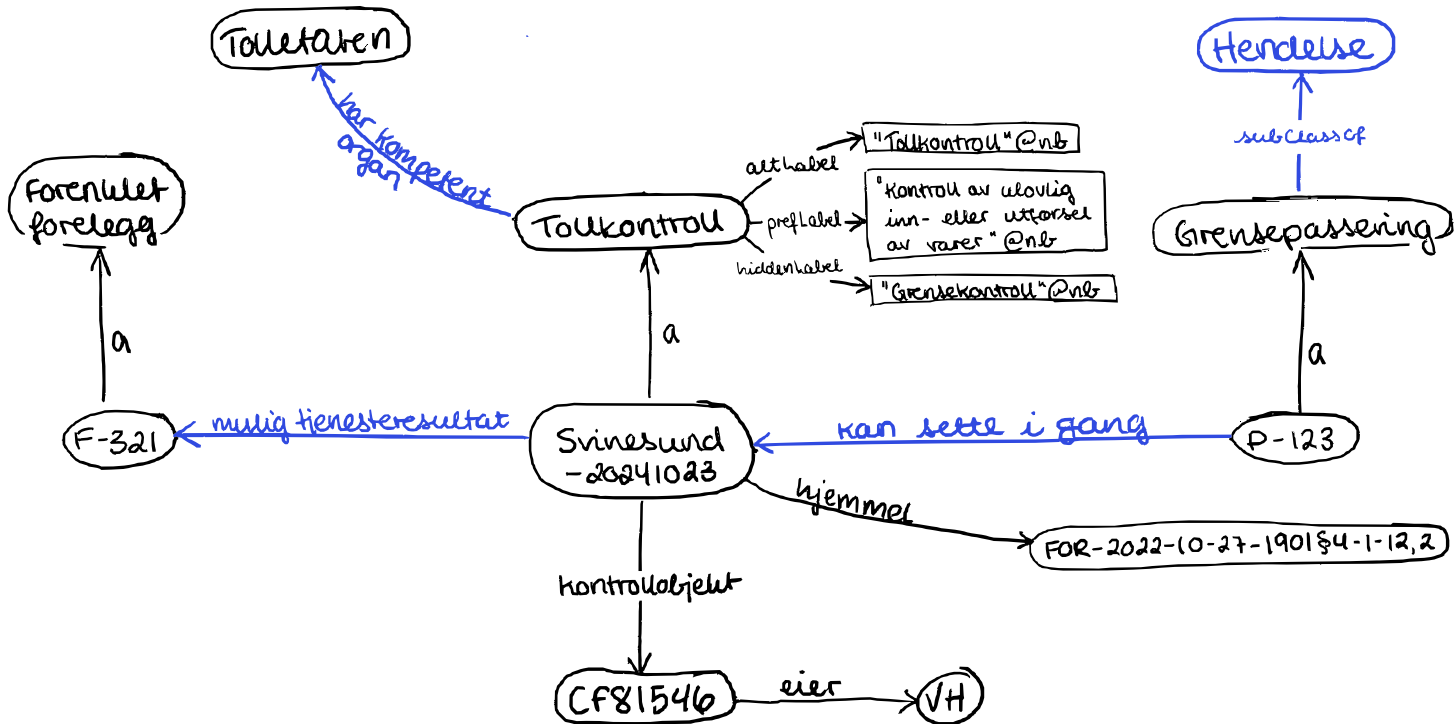 Tolletaten
Hendelse
har kompetent
organ
subClassOf
altLabel
"Tollkontroll"@nb
Forenklet
forelegg
Tollkontroll
prefLabel
"Kontroll av ulovlig
inn- eller utførsel
av varer"@nb
Grensepassering
hiddenLabel
"Grensekontroll"@nb
a
a
a
F-321
mulig tjenesteresultat
Svinesund
-20241023
kan sette i gang
P-123
hjemmel
FOR-2022-10-27-1901§4-1-12,2
kontrollobjekt
CF81546
eier
VH